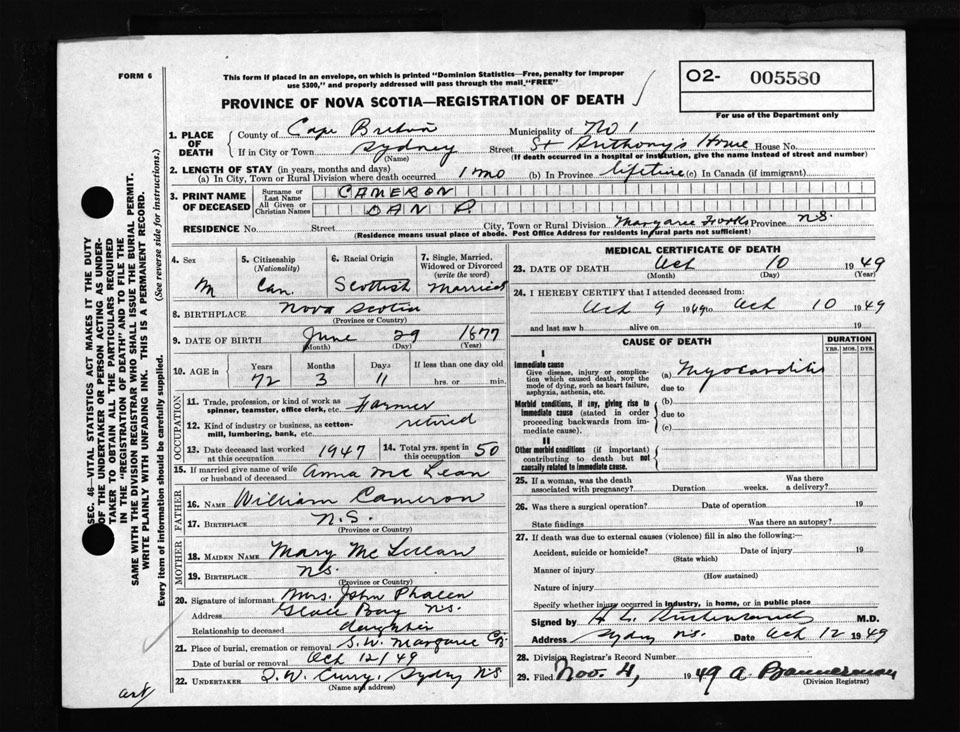 FORM 6
This form if placed in an envelope, on which is printed "Dominion Statistics—Free, penalty for improper
use $300," and properly addressed will pass through the mail "FREE"
PROVINCE OF NOVA SCOTIA—REGISTRATION OF DEATH
O2- 005580
For use of the Department only
SEC. 46—VITAL STATISTICS ACT MAKES IT THE DUTY
OF THE UNDERTAKER OR PERSON ACTING AS UNDER-
TAKER TO OBTAIN ALL THE PARTICULARS REQUIRED
IN THE "REGISTRATION OF DEATH" AND TO FILE THE
SAME WITH THE DIVISION REGISTRAR WHO SHALL ISSUE THE BURIAL PERMIT.
WRITE PLAINLY WITH UNFADING INK. THIS IS A PERMANENT RECORD.
Every item of information should be carefully supplied. (See reverse side for instructions.)
1. PLACE OF DEATH
County of Cape Breton Municipality of No 1
If in City or Town Sydney Street St Anthony's Home House No.
(Name) (If death occurred in a hospital or institution, give the name instead of street and number)
2. LENGTH OF STAY (in years, months and days)
(a) In City, Town or Rural Division where death occurred 1 mo (b) In Province lifetime (c) In Canada (if immigrant)
3. PRINT NAME OF DECEASED
Surname or Last Name CAMERON
All Given or Christian Names DAN P.
RESIDENCE No. Street City, Town or Rural Division Margaree Forks Province N.S.
(Residence means usual place of abode. Post Office Address for residents in rural parts not sufficient)
4. Sex M
5. Citizenship (Nationality) Can.
6. Racial Origin Scottish
7. Single, Married, Widowed or Divorced (write the word) Married
8. BIRTHPLACE Nova Scotia
(Province or Country)
9. DATE OF BIRTH June 29 1877
(Month) (Day) (Year)
10. AGE in Years 72 Months 3 Days 11 If less than one day old hrs. or min.
OCCUPATION
11. Trade, profession, or kind of work as spinner, teamster, office clerk, etc. Farmer
12. Kind of industry or business, as cotton-mill, lumbering, bank, etc. retired
13. Date deceased last worked at this occupation 1947
14. Total yrs. spent in this occupation 50
15. If married give name of wife or husband of deceased Anna Mc Lean
FATHER
16. NAME William Cameron
17. BIRTHPLACE N.S.
(Province or Country)
MOTHER
18. MAIDEN NAME Mary Mc Lellan
19. BIRTHPLACE N.S.
(Province or Country)
20. Signature of informant Mrs. John Phalen
Address Glace Bay N.S.
Relationship to deceased daughter
21. Place of burial, cremation or removal S.W. Margaree CB
Date of burial or removal Oct 12/49
22. UNDERTAKER Curry, Sydney NS
(Name and address)
MEDICAL CERTIFICATE OF DEATH
23. DATE OF DEATH Oct 10 1949
(Month) (Day) (Year)
24. I HEREBY CERTIFY that I attended deceased from:
Oct 9 1949 to Oct 10 1949
and last saw h alive on 19
CAUSE OF DEATH
DURATION
YRS. MOS. DYS.
I
Immediate cause
Give disease, injury or complication which caused death, NOT the mode of dying, such as heart failure, asphyxia, asthenia, etc.
(a) Myocarditis
due to
Morbid conditions, if any, giving rise to immediate cause (stated in order proceeding backwards from immediate cause).
(b)
due to
(c)
II
Other morbid conditions (if important) contributing to death but not causally related to immediate cause.
25. If a woman, was the death associated with pregnancy? Duration weeks. Was there a delivery?
26. Was there a surgical operation? Date of operation 19
State findings Was there an autopsy?
27. If death was due to external causes (violence) fill in also the following:—
Accident, suicide or homicide? Date of injury 19
(State which)
Manner of injury
(How sustained)
Nature of injury
Specify whether injury occurred in industry, in home, or in public place
Signed by M.D.
Address Sydney N.S. Date Oct 12 1949
28. Division Registrar's Record Number
29. Filed Nov. 4, 1949 A. Bannerman
(Division Registrar)